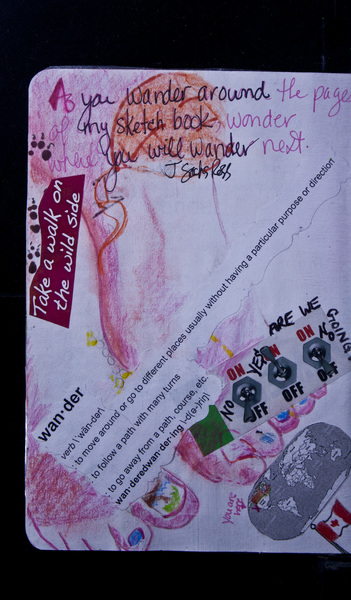 As you wander around the page
of my sketch book, wonder
where you will wander next.
Take a walk on
the wild side
wan·der
verb \ˈwän-dər\
: to move around or go to different places usually without having a particular purpose or direction
: to follow a path with many turns
: to go away from a path, course, etc.
wan·deredwan·der·ing \-d(ə-)riŋ\
ARE WE
GOING
NO YES
NO
ON
ON
ON
OFF
OFF
OFF
You are
here